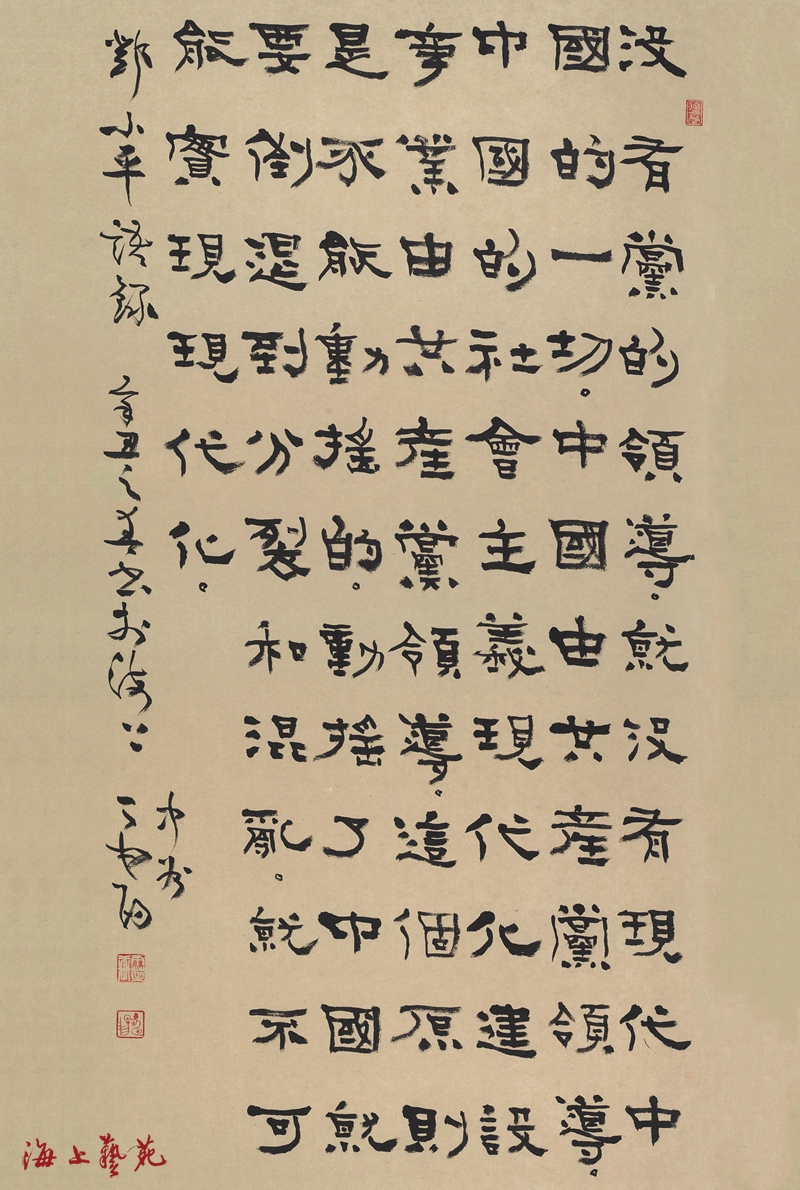 没有黨的領導。就没有現代中
國的一切。中國由共産黨領導。
中國的社會主義現代化建設
事業由共産黨領導。這個原則
是不能動搖的。動搖了中國就
要倒退到分裂和混亂。就不可
能實現現代化。
鄧小平語錄 辛丑之春書於海上
丁申陽
海上藝苑